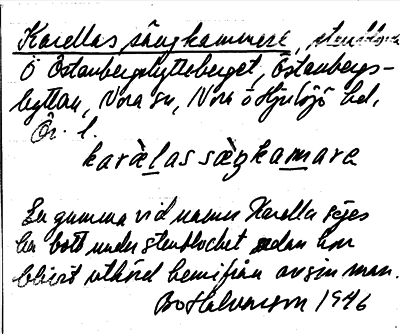 Karellas sängkammare, stenblock
Ö Östanbergshytteberget, Östanbergs-
hyttan, Nora sn, Nora o Hjulsjö bd,
Ör. l.
karèlas sèŋkamara
En gumma vid namn Karella säges
ha bott under stenblocket sedan hon
blivit utkörd hemifrån av sin man.
Bo Halvarson 1946